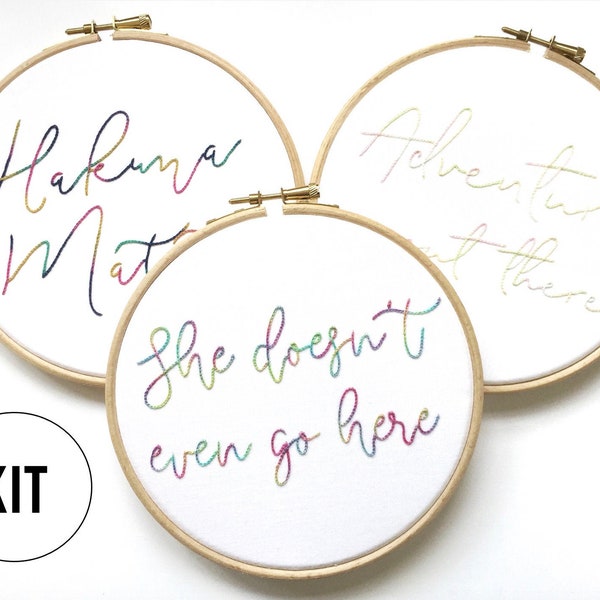 Hakuna
Adventu
there
She doesn't
even go here
KIT